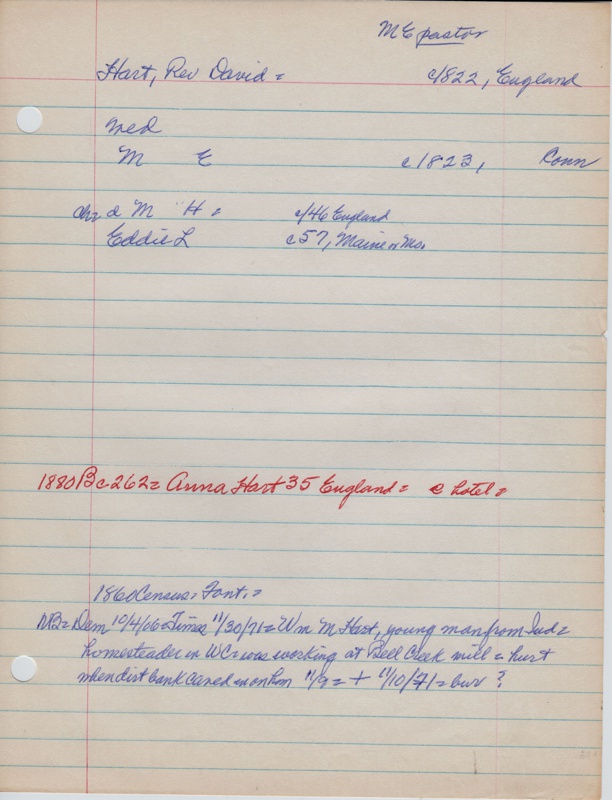 ME pastor
Hart, Rev David = c1822, England
med
M E c1823, Conn
chr a M H = c/46 England
Eddie L c57, Maine or Mo.
1880 Bc-262= Anna Hart 35 England = @ hotel =
1860 Census, Font. =
NB= Dem 10/4/06= Times 11/30/71= Wm M Hart, young man from Ind=
homesteader in WC= was working at Bell Creek mill = hurt
when dirt bank caved in on him 11/9= + 11/10/71= bur ?